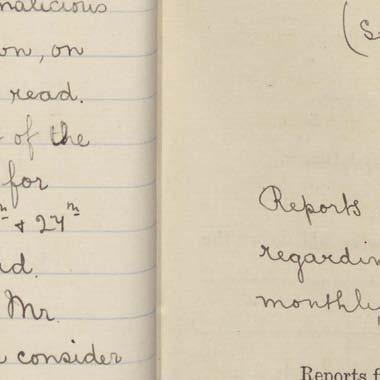 malicious
on, on
read.
of the
for
& 27
Mr.
consider
(S
Reports
regardin
monthly
Reports f